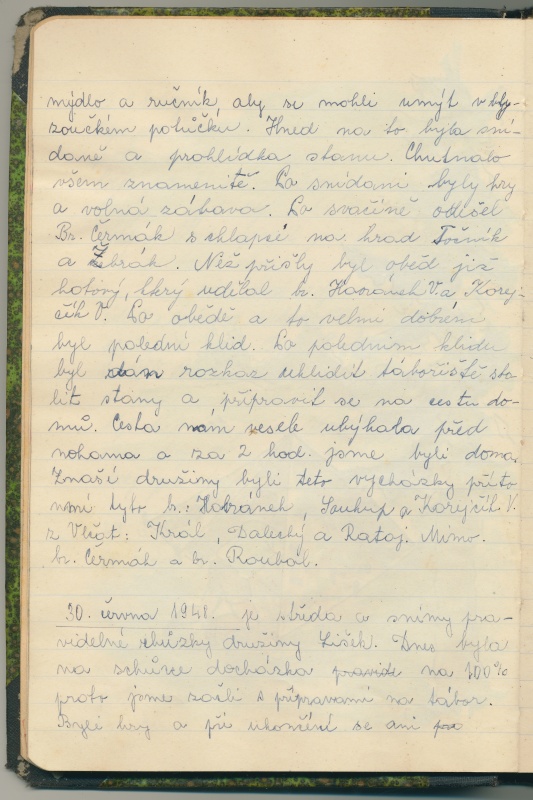 mýdlo a ručník, aby se mohli umýt v bly-
zoučkém potůčku. Hned na to byla sní-
daně a prohlídka stanu. Chutnalo
všem znamenitě. Po snídani byly hry
a volná zábava. Po svačině odešel
Br. Čermák s chlapci na hrad Točník
a Žebrák. Než přišly byl oběd již
hotový, který udělal br. Havránek V. a Korej-
čík V. Po obědě a to velmi dobrém
byl polední klid. Po poledním klidu
byl dán rozkaz uklidit tábořiště sba-
lit stany a připravit se na cestu do-
mů. Cesta nám vesele ubýhala před
nohama a za 2 hod. jsme byli doma.
Z naší družiny byli této vycházky přito-
mni tyto b.: Havránek, Soukup a Korejčík V.
z Vlčat: Král, Dalecký a Rataj. Mimo.
br. Čermák a br. Roubal.
30. června 1948. je středa a snímy pra-
videlné schůzky družiny Lišek. Dnes byla
na schůzce docházka na 100%
proto jsme začli s přípravami na tábor.
Byli hry a při ukončení se ani